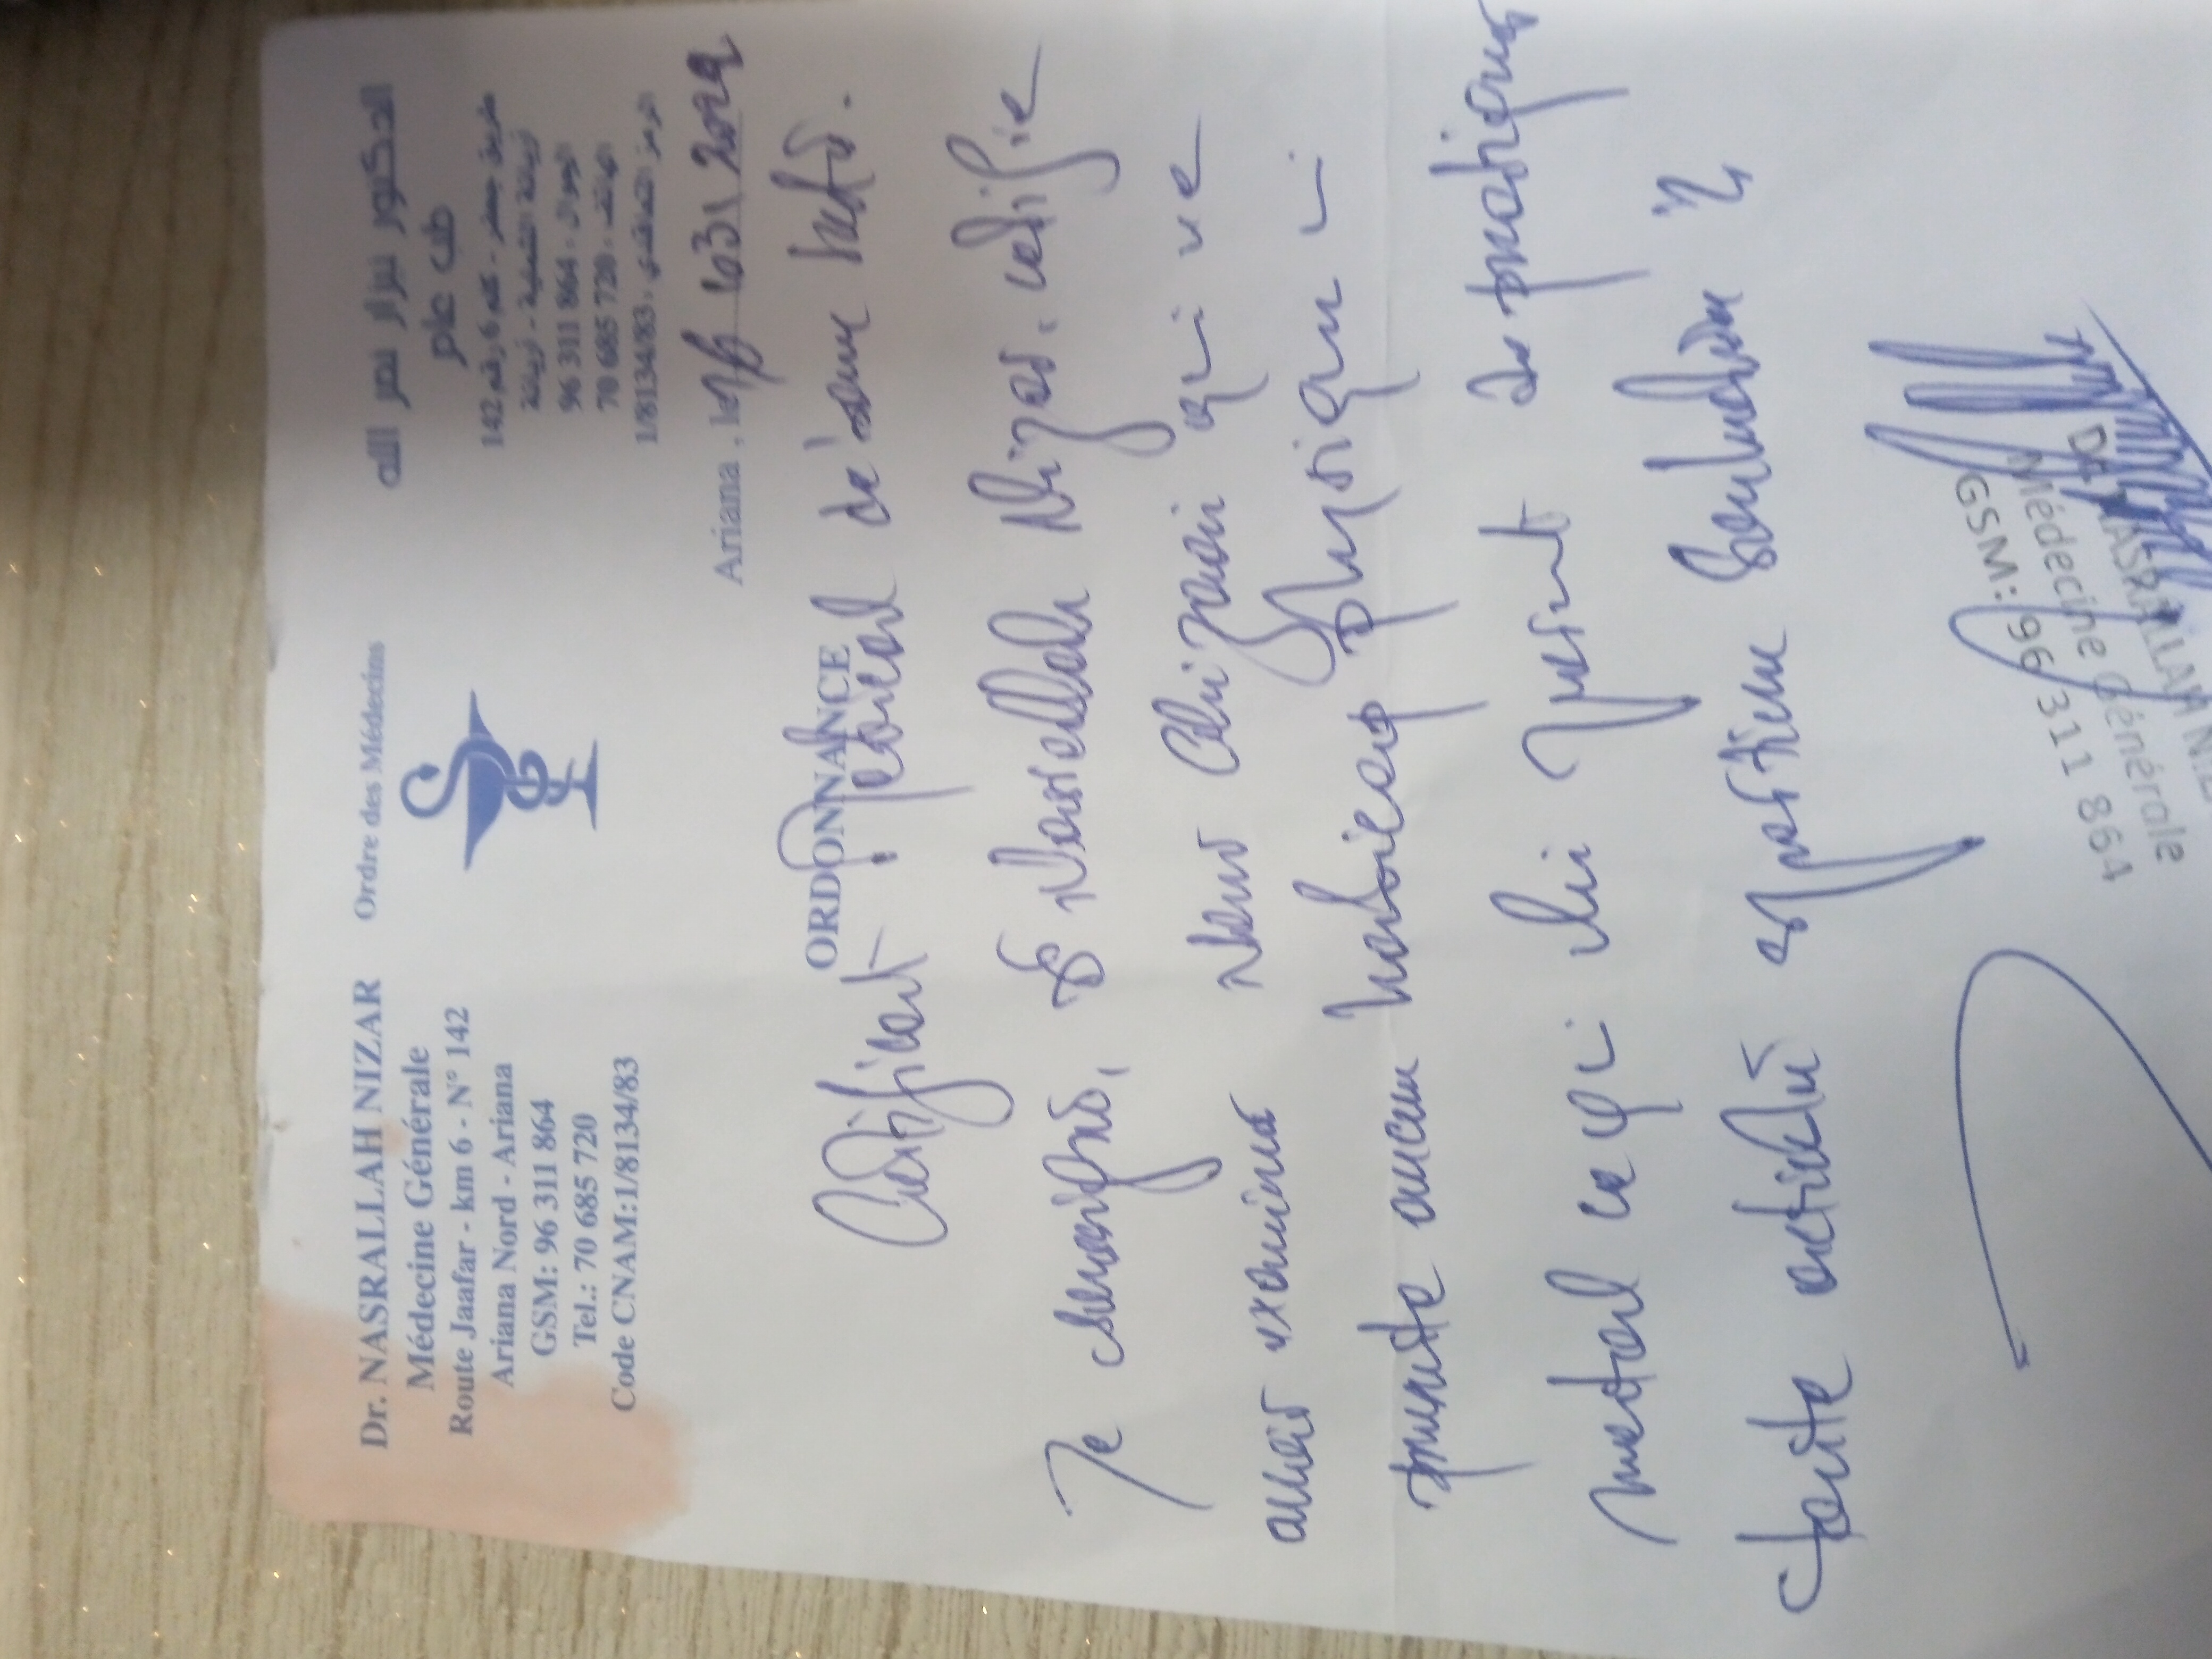 Dr. NASRALLAH NIZAR
Médecine Générale
Route Jaafar - km 6 - N° 142
Ariana Nord - Ariana
GSM: 96 311 864
Tel.: 70 685 720
Code CNAM:1/8134/83
Ordre des Médecins
الدكتور نزار نصر الله
طب عام
طريق جعفر - كلم 6 رقم 142
أريانة الشمالية - أريانة
الجوال : 96 311 864
الهاتف : 70 685 720
الرمز التعاقدي : 1/8134/83
Ariana , le
ORDONNANCE
Certificat médical
Je soussigné, Dr Nasrallah Nizar, certifie
avoir examiné qui ne
présente aucun handicap physique ni
mental ce qui lui permet de pratiquer
toute activité
DR NASRALLAH
Médecine Générale
GSM: 96 311 864